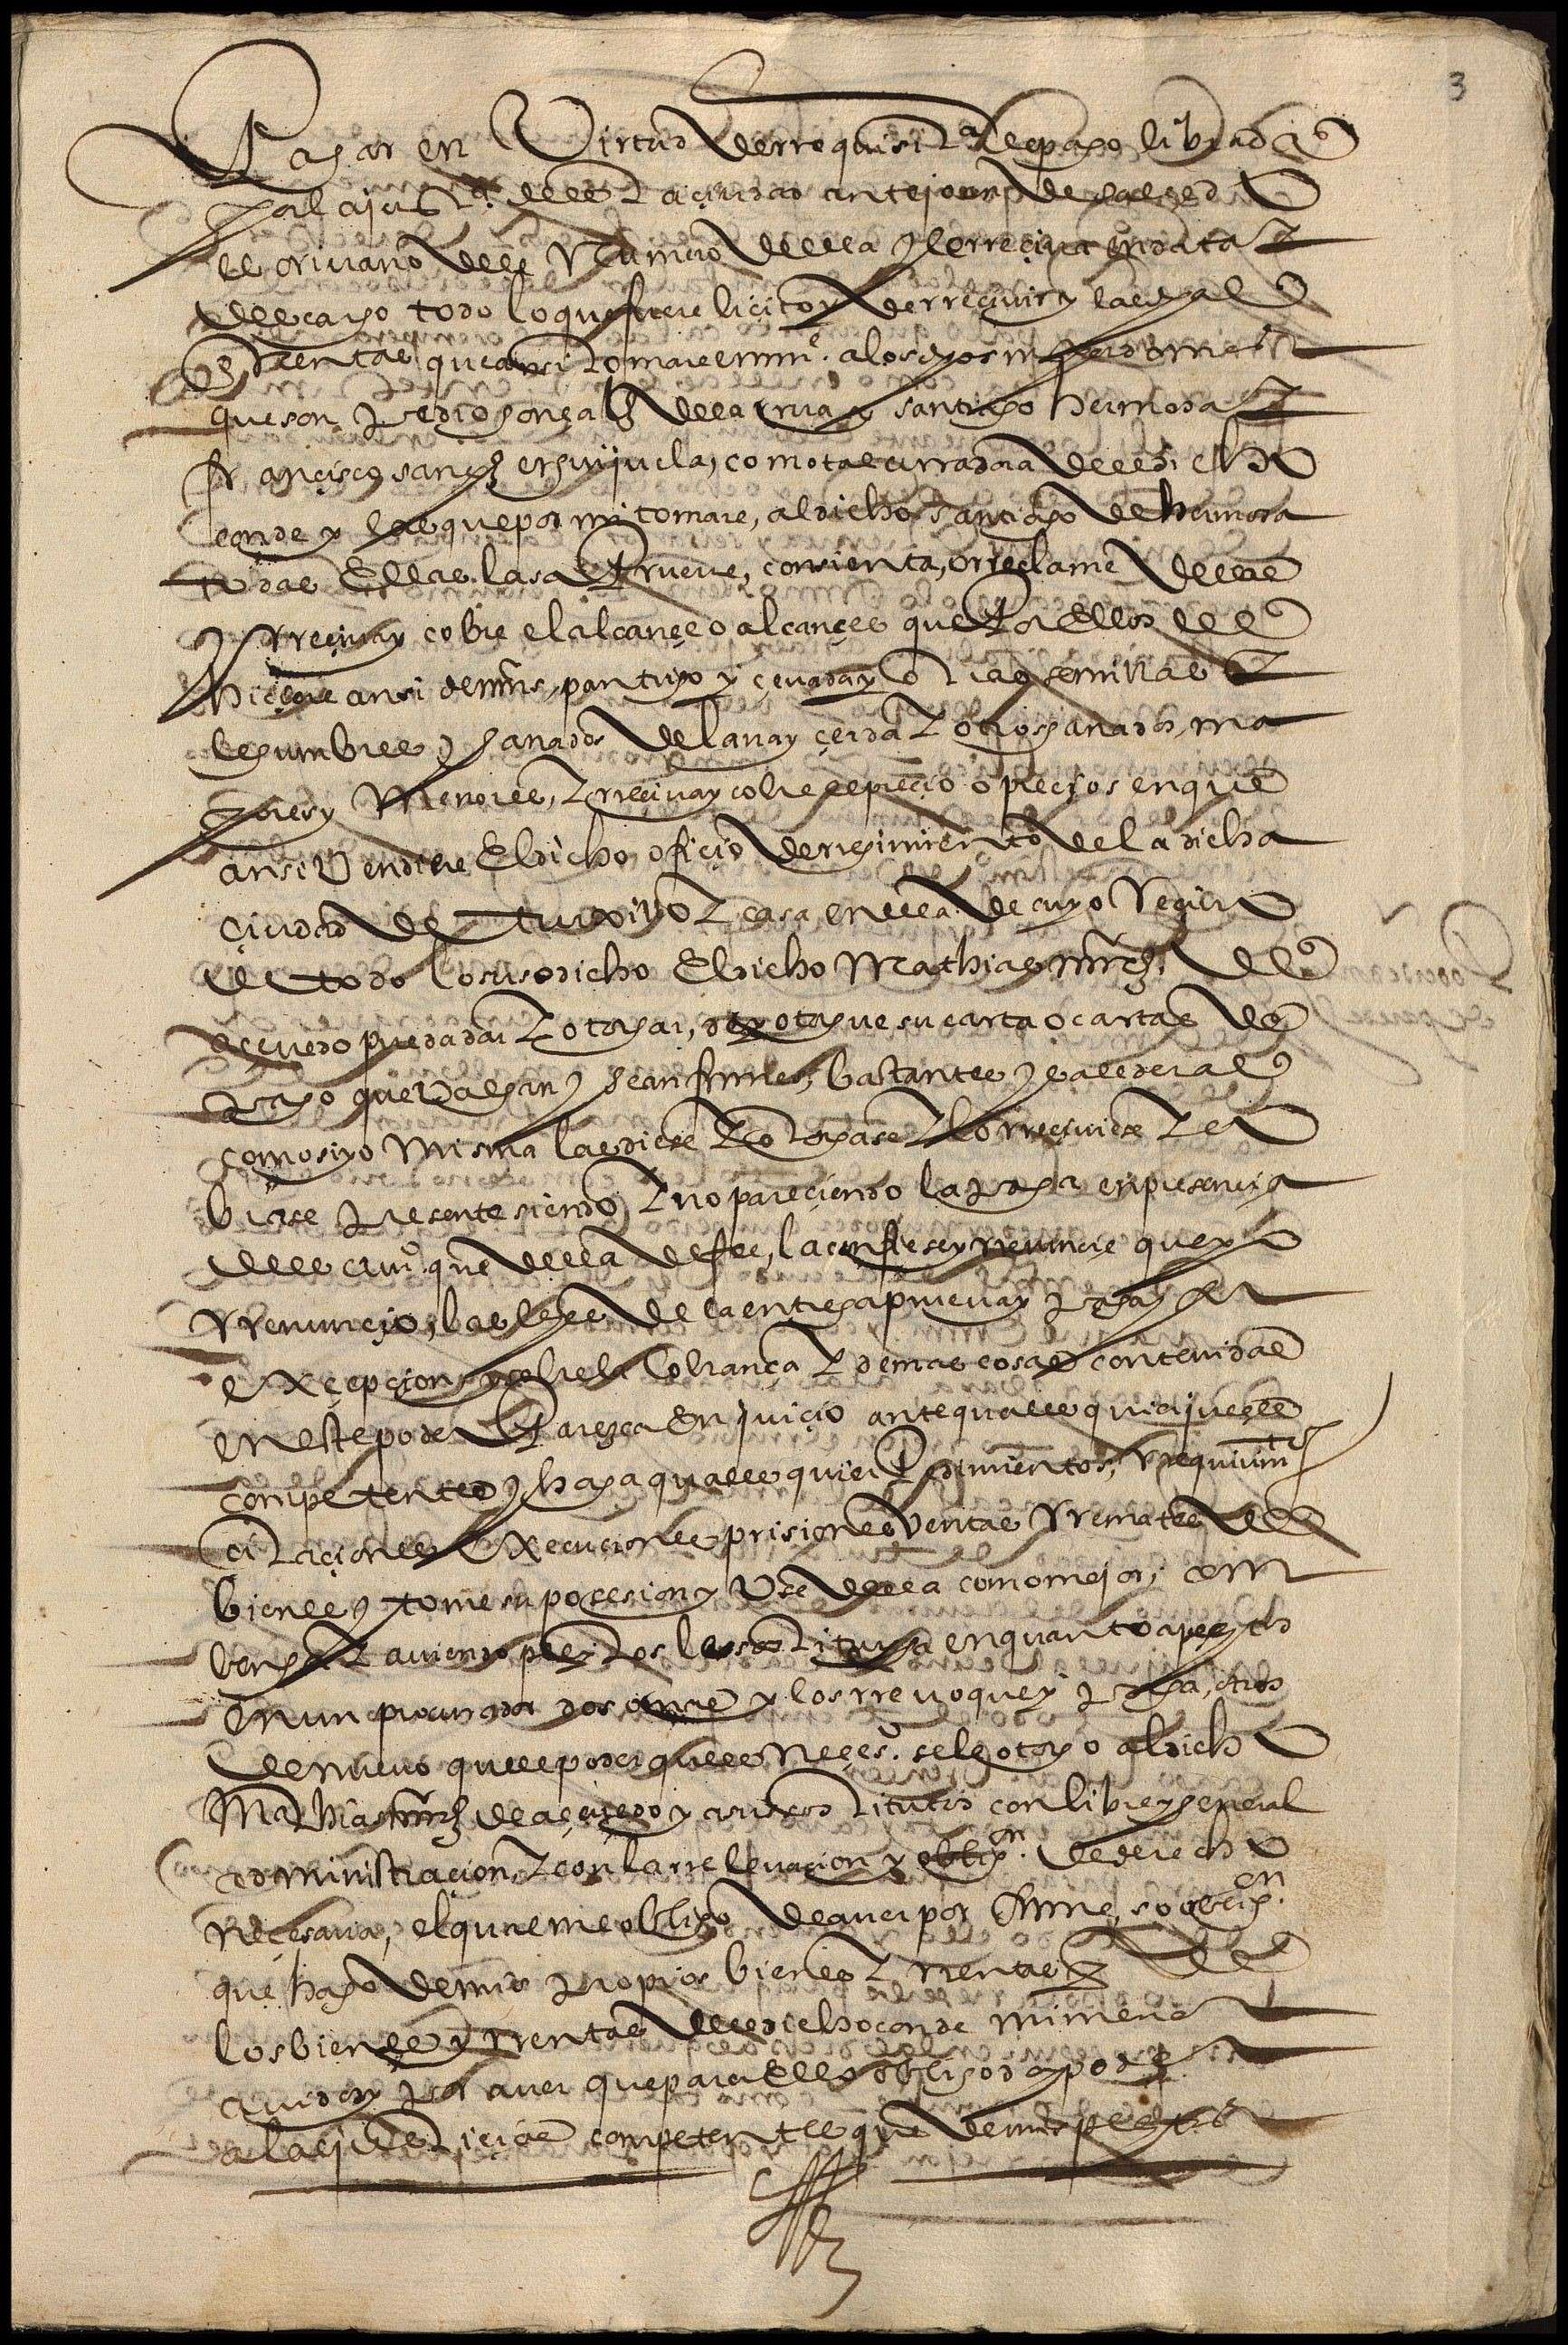 3
Pagar en Virtud de rrequisita de pago librada
por la justa. desta ciudad ante joan de salzedo
escrivano del Numero della y le rreciva en data
descargo todo lo que fuere licito de rrecivir y las quales
quentas que ansi tomare en mi ne. a los dhos
que son pedro gonçalez de la rrua y santiago hermosa
francisco sanchez erguijuela, como tal curadora del dicho
conde y las que por mi tomare, al dicho santiago de hermosa
todas Ellas las aprueve, consienta, o rreclame dellas
y rreciva y cobre el alcançe o alcançes que por Ellas les
hiciere ansi de mrs, pan trigo y cevada y otras semillas
legumbres y ganados de lana y cerda y otros ganados, ma
yores y Menores, y rreciva y cobre el precio o precios en que
ansi Vendiere El dicho oficio de rregimiento de la dicha
ciudad de truxillo y casa en ella de cuyo Recivo
e todo lo susodicho El dicho Mathias mrnz. de
acevedo pueda dar y otorgar, de y otorgue su carta o cartas de
pago que Valgan y sean firmes, bastantes y valederas
como si yo Misma las diese y otorgase y lo rrecivida y co
brase presente siendo y no pareciendo la paga en presencia
del escrivo. que della de fee, la confiese y rrenuncie que yo
rrenuncio, las leyes de la entrega prueva y paga y su
excepcion y sobre la cobrança y demas cosas contenidas
en este poder Parezca En juicio ante qualesquier jueces
competentes y haga qualesquier Pedimientos, rrequirimtos
citaciones Execuciones prisiones Ventas rremates de
bienes y tome su posesion y Use della como mejor, con
venga y aviendo pleitos le sostituya en quanto a pleytos
en un procurador dos o mas y los rrevoque y ponga, otros
de nuevo que el poder que es Neces.o se le otorgo al dicho
Mathias mrnz de acevedo y a sus sostitutos con libre y general
administracion y con la rrelevacion y obligon. de derecho
necesaria, el qual me obligo de aver por firme, so obligon.
que hago de mis propios bienes y rrentas y de
los bienes y rrentas del dicho conde mi menor
avidos y por aver que para Ello obligo doy poder
a las justicias competentes que de mis pleytos